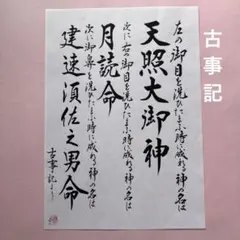 古事記
左の御目を洗ひたまふ時に成れる神の名は
天照大御神
次に右の御目を洗ひたまふ時に成れる神の名は
月読命
次に御鼻を洗ひたまふ時に成れる神の名は
建速須佐之男命
古事記より